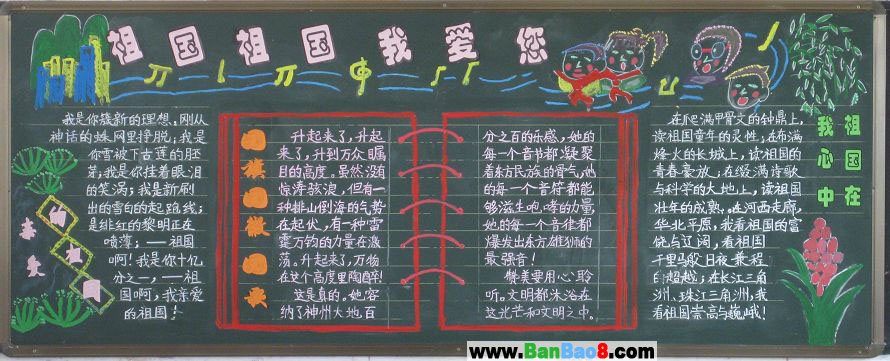 祖国祖国我爱您
我是你簇新的理想,刚从
神话的蛛网里挣脱;我是
你雪被下古莲的胚
芽;我是你挂着眼泪
的笑涡;我是新刷
出的雪白的起跑线;
是绯红的黎明正在
喷薄;——祖国
啊!我是你十亿
分之一,——祖
国啊,我亲爱
的祖国!
亲爱
的祖国
升起来了,升起
来了,升到万众瞩
目的高度。虽然没有
惊涛骇浪,但有一
种排山倒海的气势
在起伏,有一种雷
霆万钧的力量在激
荡。升起来了,万物
在这个高度里陶醉!
这是真的。她容
纳了神州大地百
分之百的乐感,她的
每一个音节都凝聚
着东方民族的骨气,她
的每一个音符都能
够滋生咆哮的力量,
她的每一个音律都
爆发出东方雄狮的
最强音!
赞美要用心聆
听。文明都沐浴在
这光芒和文明之中。
在爬满甲骨文的钟鼎上,
读祖国童年的灵性;在布满
烽火的长城上,读祖国的
青春豪放,在缀满诗歌
与科学的大地上,读祖国
壮年的成熟。在河西走廊,
华北平原,我看祖国的富
饶与辽阔,看祖国
千里马般日夜兼程
的超越;在长江三角
洲、珠江三角洲,我
看祖国崇高与巍峨!
祖国在
我心中
www.BanBao8.com